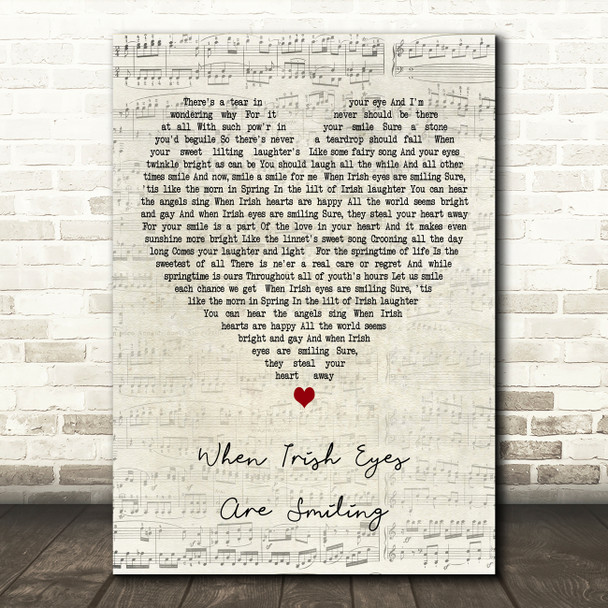 There's a tear in your eye And I'm
wondering why For it never should be there
at all With such pow'r in your smile Sure a stone
you'd beguile So there's never a teardrop should fall When
your sweet lilting laughter's Like some fairy song And your eyes
twinkle bright as can be You should laugh all the while And all other
times smile And now, smile a smile for me When Irish eyes are smiling Sure,
'tis like the morn in Spring In the lilt of Irish laughter You can hear
the angels sing When Irish hearts are happy All the world seems bright
and gay And when Irish eyes are smiling Sure, they steal your heart away
For your smile is a part Of the love in your heart And it makes even
sunshine more bright Like the linnet's sweet song Crooning all the day
long Comes your laughter and light For the springtime of life Is the
sweetest of all There is ne'er a real care or regret And while
springtime is ours Throughout all of youth's hours Let us smile
each chance we get When Irish eyes are smiling Sure, 'tis
like the morn in Spring In the lilt of Irish laughter
You can hear the angels sing When Irish
hearts are happy All the world seems
bright and gay And when Irish
eyes are smiling Sure,
they steal your
heart away
When Irish Eyes
Are Smiling